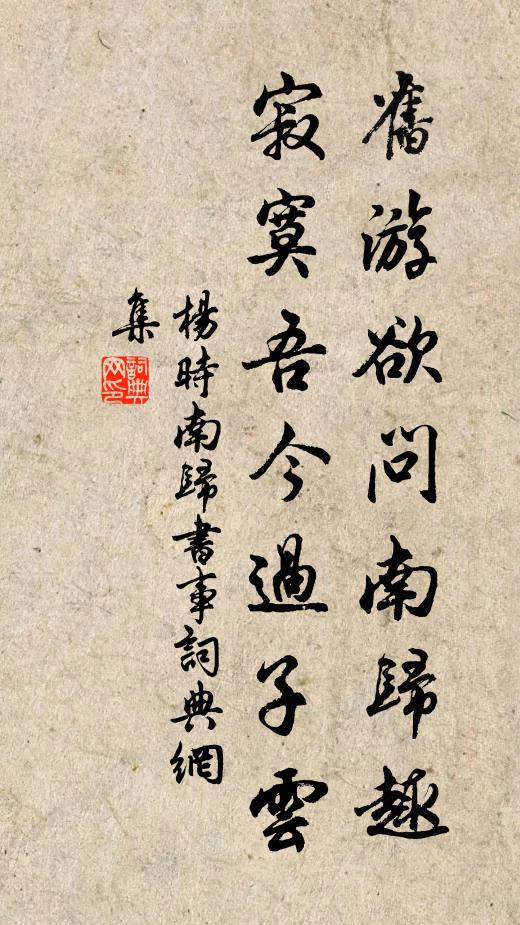 舊游欲問南歸趣
寂寞吾今過子雲
楊時南歸書事詞典網
集
詞典
网印